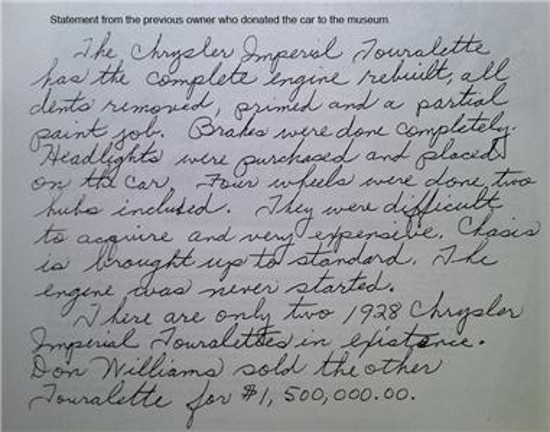 Statement from the previous owner who donated the car to the museum.
The Chrysler Imperial Touralette
has the complete engine rebuilt, all
dents removed, primed and a partial
paint job. Brakes were done completely.
Headlights were purchased and placed
on the car. Four wheels were done, two
hubs included. They were difficult
to acquire and very expensive. Chasis
is brought up to standard. The
engine was never started.
There are only two 1928 Chrysler
Imperial Touralettes in existence.
Don Williams sold the other
Touralette for $1,500,000.00.